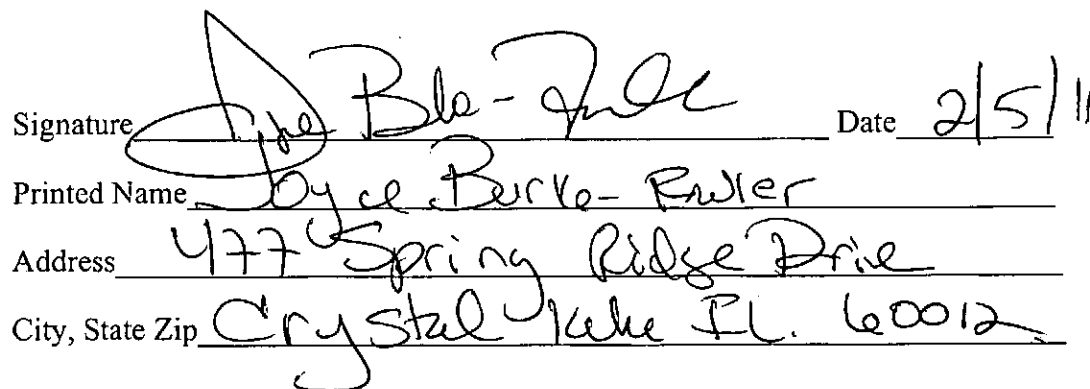 Signature Date 2/5/11
Printed Name Joyce Burke-
Address 477 Spring Ridge Drive
City, State Zip Crystal Lake IL. 60012